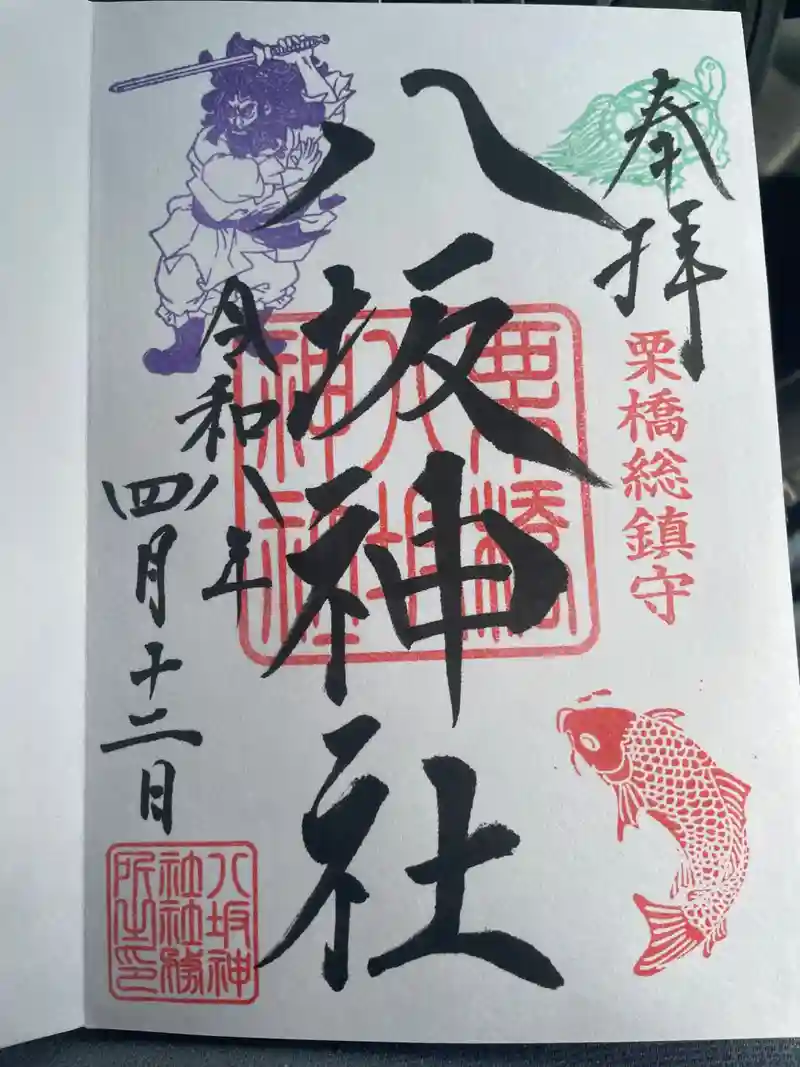 奉拝
栗橋総鎮守
八坂神社
令和八年
四月十二日
栗橋
八坂
神社
八坂神
社社務
所之印